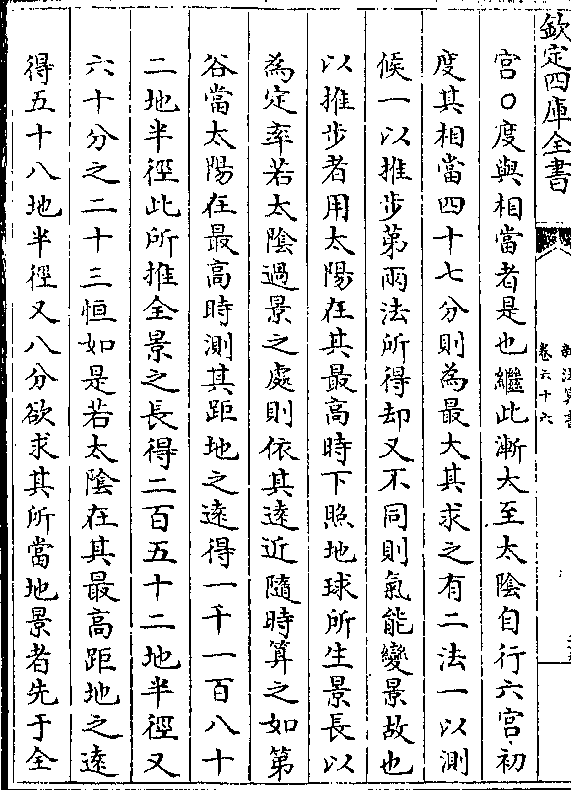 欽定四庫全書
卷六十六
宮〇度與相當者是也繼此漸大至太陰自行六宮初
度其相當四十七分則為最大其求之有二法一以測
候一以推步第兩法所得却又不同則氣能變景故也
以推步者用太陽在其最高時下照地球所生景長以
為定率若太陰過景之處則依其遠近隨時算之如第
谷當太陽在最高時測其距地之遠得一千一百八十
二地半徑此所推全景之長得二百五十二地半徑又
六十分之二十三恒如是若太陰在其最高距地之遠
得五十八地半徑又八分欲求其所當地景者先于全